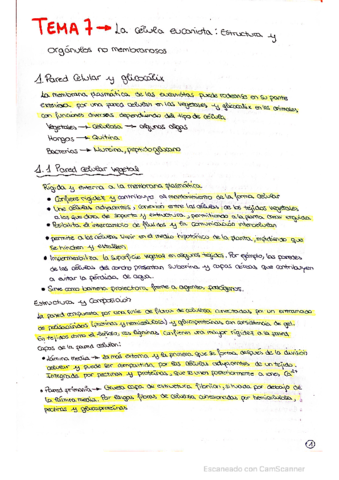 TEMA 7 → La célula eucariota: Estructura y
orgánulos no membranosos
1. Pared Celular y glicocálix
La membrana plasmática de las eucariotas puede rodearse en su parte
exterior por una pared celular en los vegetales y glicocálix en los animales
con funciones diversas dependiendo del tipo de célula.
Vegetales → Celulosa → algunas algas
Hongos → Quitina
Bacterias → Mureína, peptidoglicano
1.1 Pared celular vegetal
Rígida y externa a la membrana plasmática
• Confiere rigidez y contribuye al mantenimiento de la forma celular
• Une células adyacentes, conexión entre las células de los tejidos vegetales
a los que dota de soporte y estructura, permitiendo a la planta crecer erguida
• Posibilita el intercambio de fluidos y la comunicación intercelular
• permite a las células vivir en el medio hipotónico de la planta, impidiendo que
se hinchen y estallen
• Impermeabiliza la superficie vegetal en algunos tejidos. Por ejemplo, las paredes
de las células del corcho presentan suberina y capas céreas que contribuyen
a evitar la pérdida de agua.
• Sirve como barrera protectora, frente a agentes patógenos.
Estructura y Composición
La pared compuesta por una serie de fibras de celulosa conectadas por un entramado
de polisacáridos (pectinas y hemicelulosa) y glucoproteínas con consistencia de gel.
En tejidos como el leñoso, las ligninas confieren una mayor rigidez a la pared
Capas de la pared celular:
• Lámina media → La más externa y la primera que se forma después de la división
celular y puede ser compartida por las células adyacentes de un tejido.
Integrada por pectinas y proteínas, que se unen posteriormente a iones Ca²⁺
• Pared primaria → Gruesa capa de estructura fibrilar, situada por debajo de
la lámina media. Por largas fibras de celulosa cohesionadas por hemicelulosa,
pectinas y glucoproteínas
1
Escaneado con CamScanner